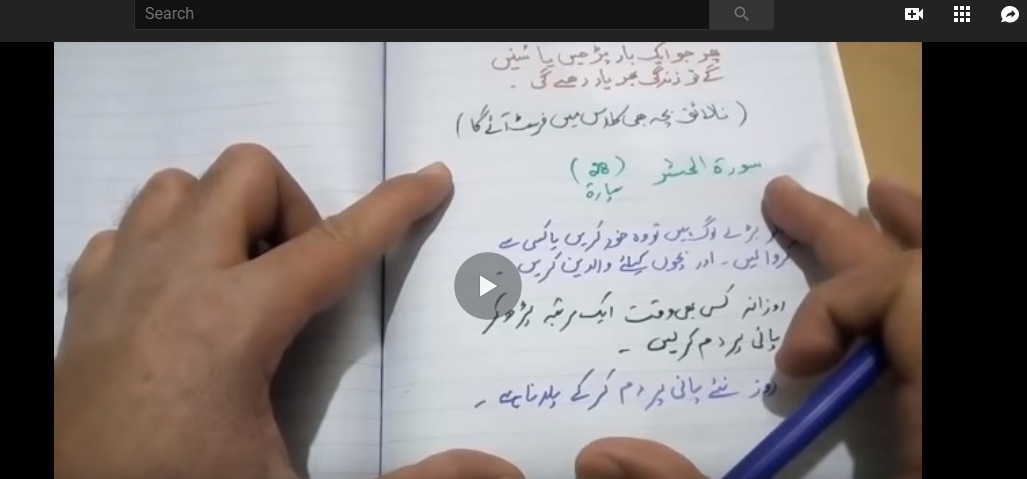 Search
پھر جو ایک بار پڑھیں یا سُنیں
گے تو زندگی بھر یاد رھے گی ۔
(نالائق بچہ بھی کلاس میں فرسٹ آئے گا)
سورة الحشر (28)
سپارة
بڑے لوگ ہیں تو وہ خود کریں یا کسی سے
کروا لیں ۔ اور بچوں کیلئے والدین کریں ۔
روزانہ کسی بھی وقت ایک مرتبہ پڑھ کر
پانی پر دم کریں ۔
روز نئے پانی پر دم کر کے پلانا ہے ۔